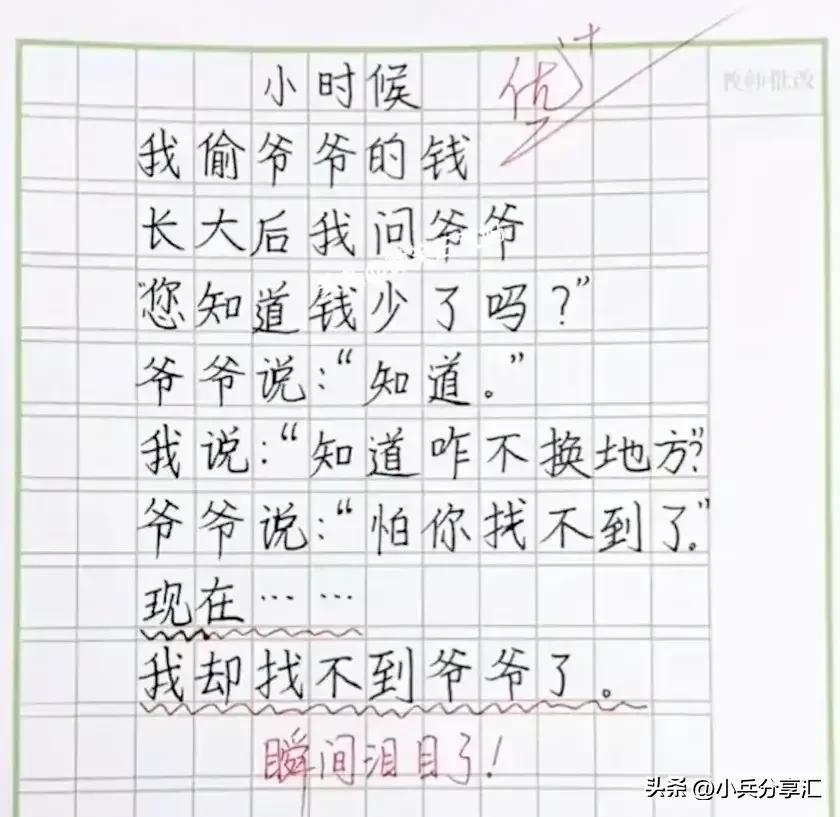 小时候
优+
教师批改
我偷爷爷的钱
长大后我问爷爷
“您知道钱少了吗？”
爷爷说：“知道。”
我说：“知道咋不换地方？”
爷爷说：“怕你找不到了。”
现在……
我却找不到爷爷了。
瞬间泪目了！
头条 @小兵分享汇